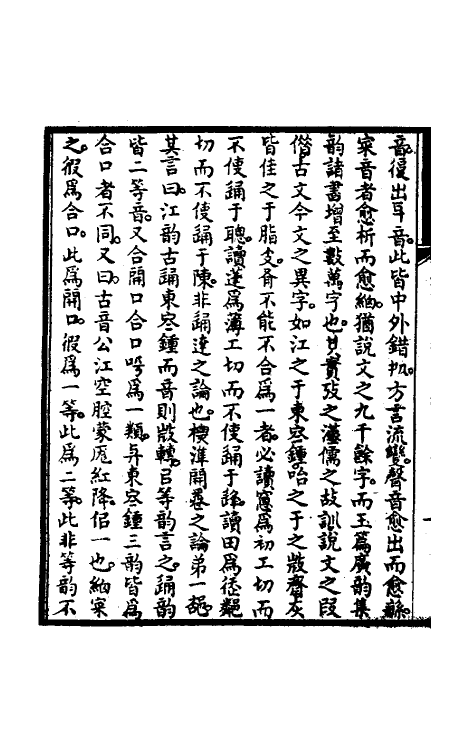 音復出耳音此皆中外錯䢛方言流變聲音愈出而愈繇
穼音者愈析而愈紬猶說文之九千餘字而玉篇廣韵集
韵諸書增至數萬字也其實攷之漢儒之故訓說文之叚
僭古文今文之異字如江之于東冬鍾咍之于之微齊灰
皆佳之于脂支斉不能不合爲一者必讀窻爲初工切而
不使歸于聰讀蓬爲薄工切而不使歸于鋒讀田爲徒𪐀
切而不使歸于陳非歸達之論也稷準開卷之論弟一
其言曰江韵古歸東冬鍾而音則㪚轉吕等韵言之歸韵
皆二等音又合開口合口呺爲一類與東冬鍾三韵皆爲
合口者不同又曰古音公江空腔蒙厖紅降佀一也紬穼
之彼爲合口此爲開口彼爲一等此爲二等此非等韵不